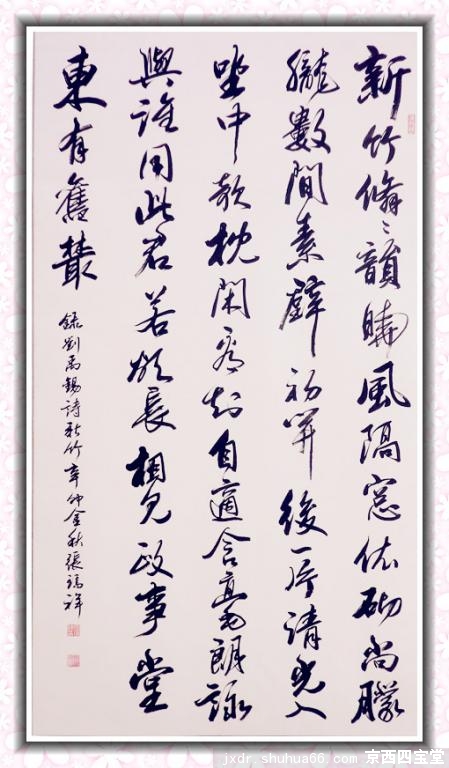 新竹翛〻韻曉風隔窓依砌尚朦
朧數間素壁初開後一段清光入
坐中欹枕閑看知自適含毫朗詠
與誰同此君若欲長相見政事堂
東有舊叢
錄劉禹錫詩新竹辛卯金秋張瑞祥
jxdr.shuhua66.com 京西四宝堂